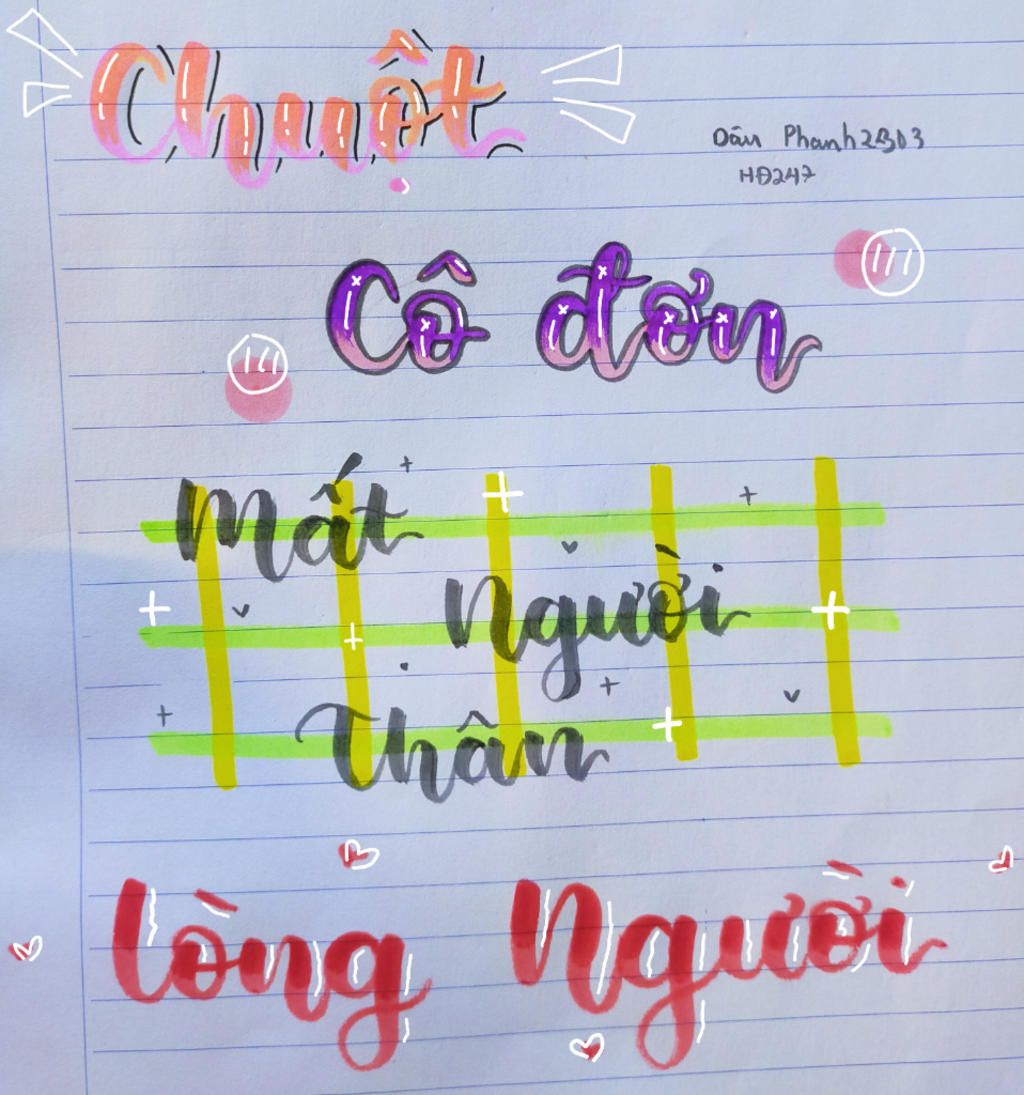 Chuột
Dân Phanh2803
HĐ247
Cô đơn
Mất
Người
Thân
Lòng Người